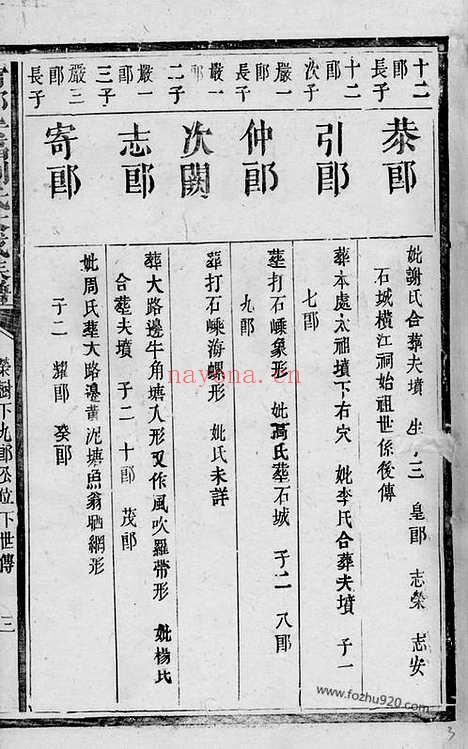 十二郎長子
恭郎
妣謝氏合葬夫墳 生 三 皇郎 志榮 志安
石城橫江祠始祖世係後傳
十二郎次子
引郎
葬本處太祖墳下右穴 妣李氏合葬夫墳 子一
七郎
嚴一郎長子
仲郎
塟打石嵊象形 妣馮氏葬石城 子二 八郎
九郎
嚴一郎二子
次闕
葬打石嵊海螺形 妣氏未詳
嚴一郎三子
志郎
葬大路邊牛角塘人形又作風吹羅帶形 妣楊氏
合塟夫墳 子二 十郎 茂郎
嚴三郎長子
寄郎
妣周氏葬大路邊黃泥塘魚翁晒網形
子二 耀郎 癸郎
榮樹下九郎公位下世傳
三
nayona.cn
www.fozhu920.com
3